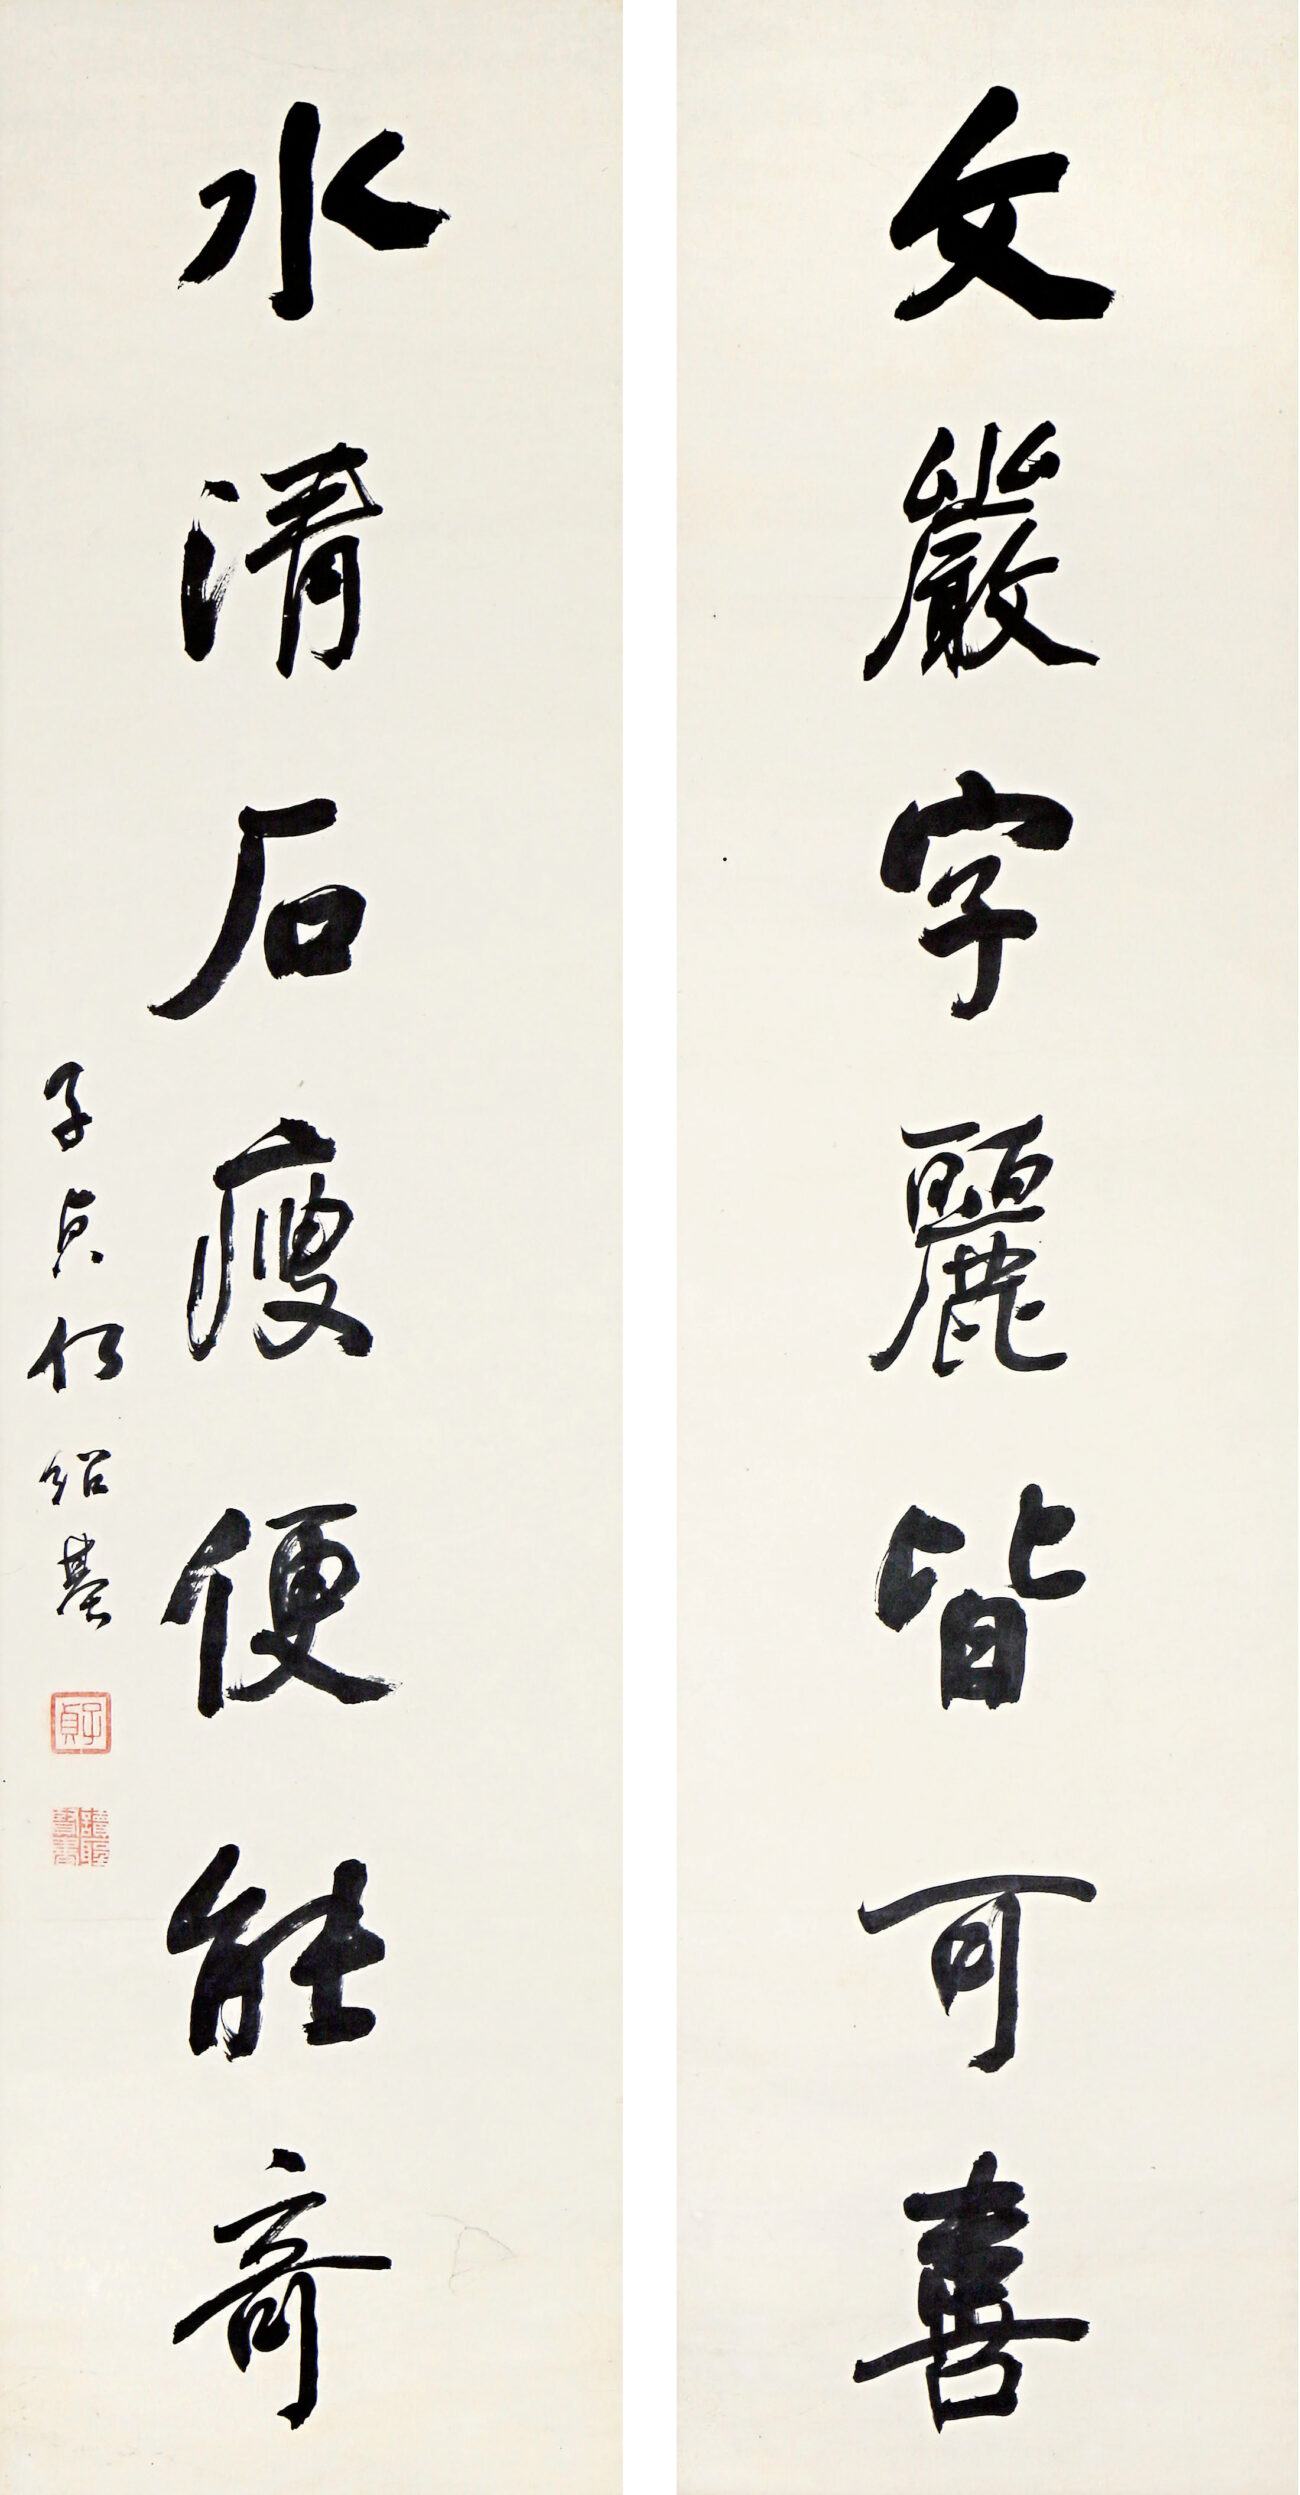 文嚴字麗皆可喜
水清石瘦便能奇
子貞何紹基
子貞